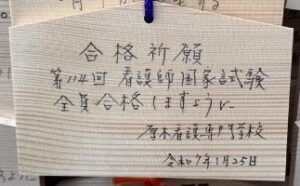 合格祈願
第114回 看護師国家試験
全員合格しますように
厚木看護専門学校
令和7年1月25日